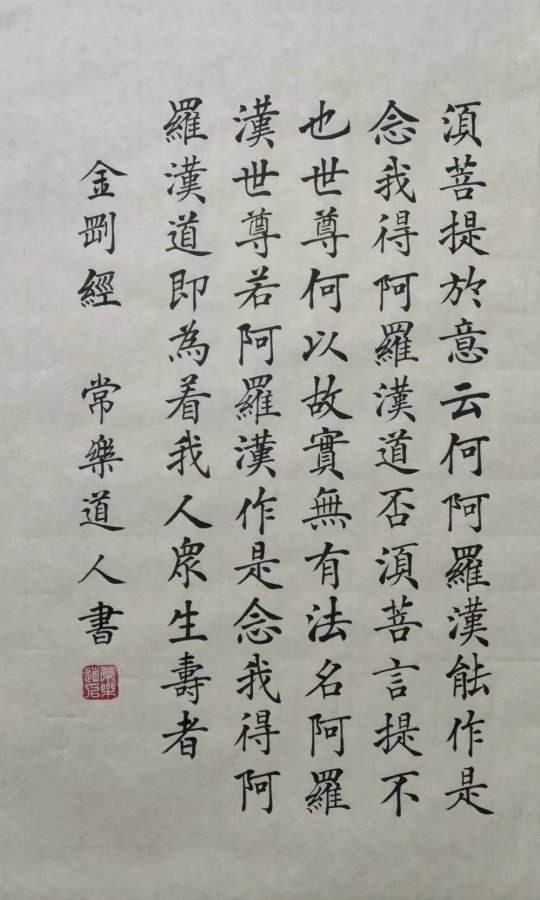 須菩提於意云何阿羅漢能作是
念我得阿羅漢道否須菩言提不
也世尊何以故實無有法名阿羅
漢世尊若阿羅漢作是念我得阿
羅漢道即為着我人眾生壽者
金剛經 常樂道人書